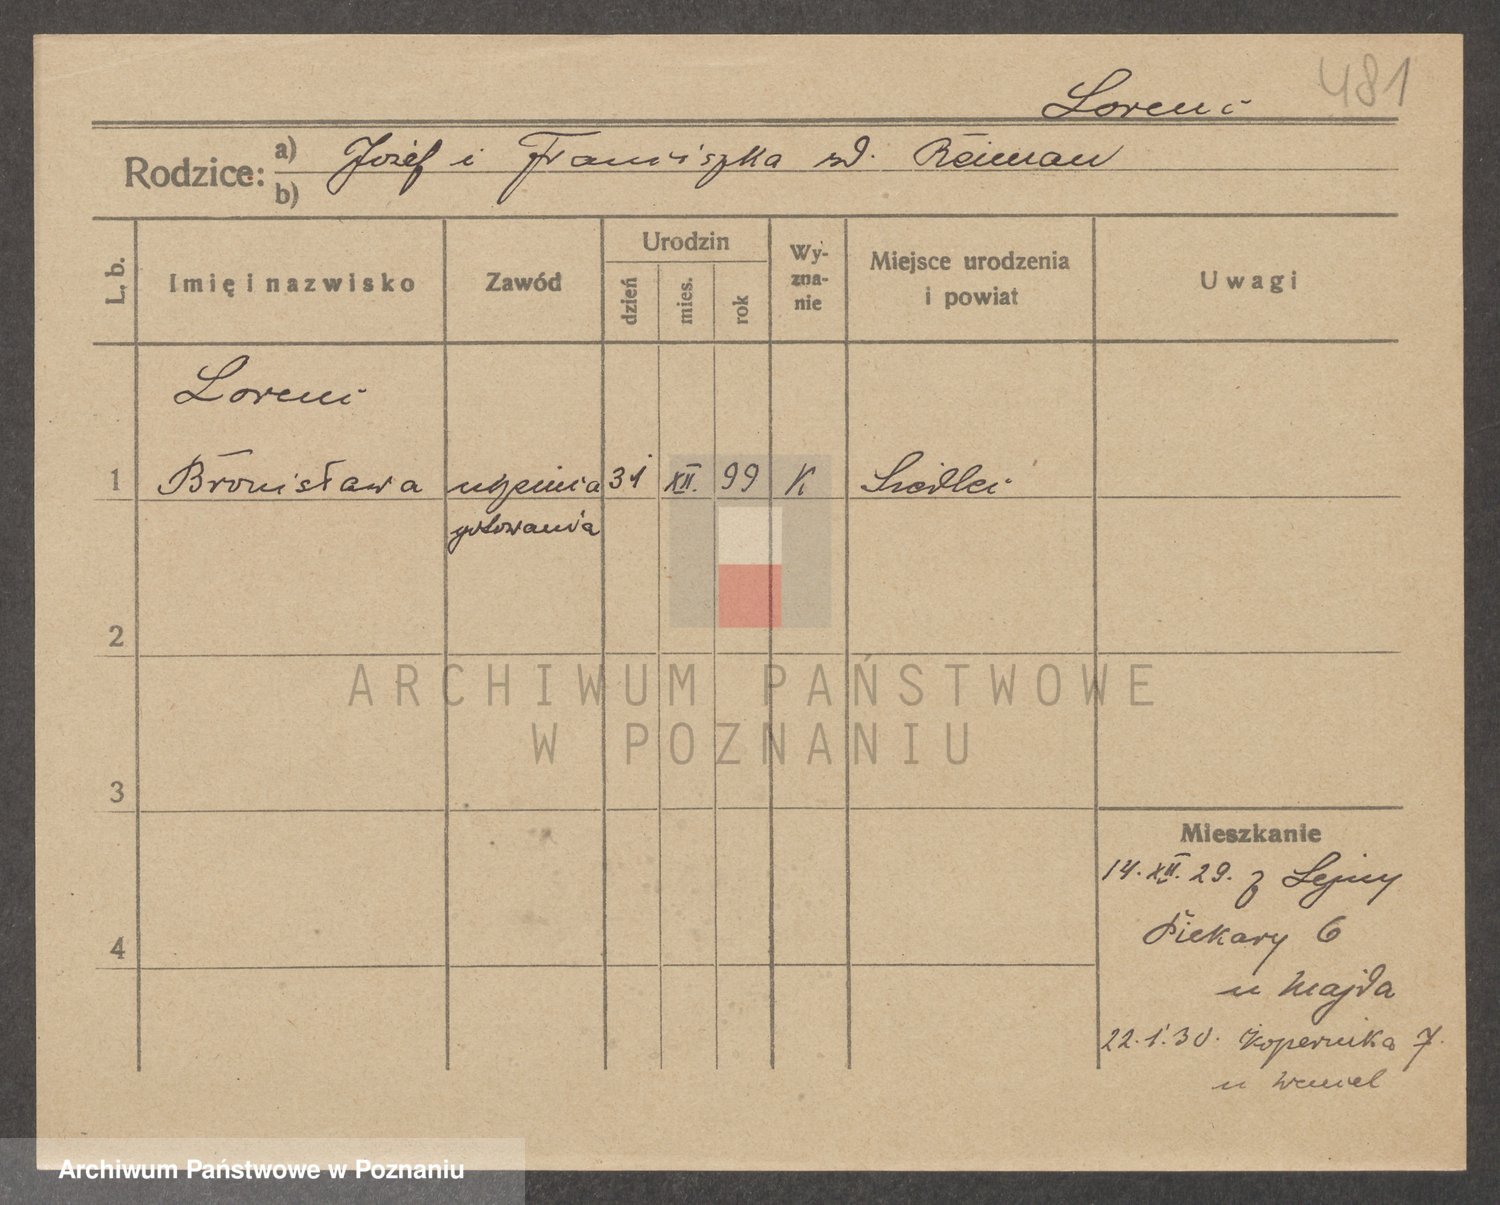 481
Lorenc
Rodzice: a) Józef i Franciszka zd. Reiman
b)
L. b.
Imię i nazwisko
Zawód
Urodzin
dzień
mies.
rok
Wy-
zna-
nie
Miejsce urodzenia
i powiat
Uwagi
Lorenc
1 Bronisława uczenica 31 XII. 99 K Siedlec
gotowania
2
3
4
Mieszkanie
14. XII. 29. z
Piekary 6
u Majda
22.1.30. Kopernika 7.
u
ARCHIWUM PAŃSTWOWE
W POZNANIU
Archiwum Państwowe w Poznaniu